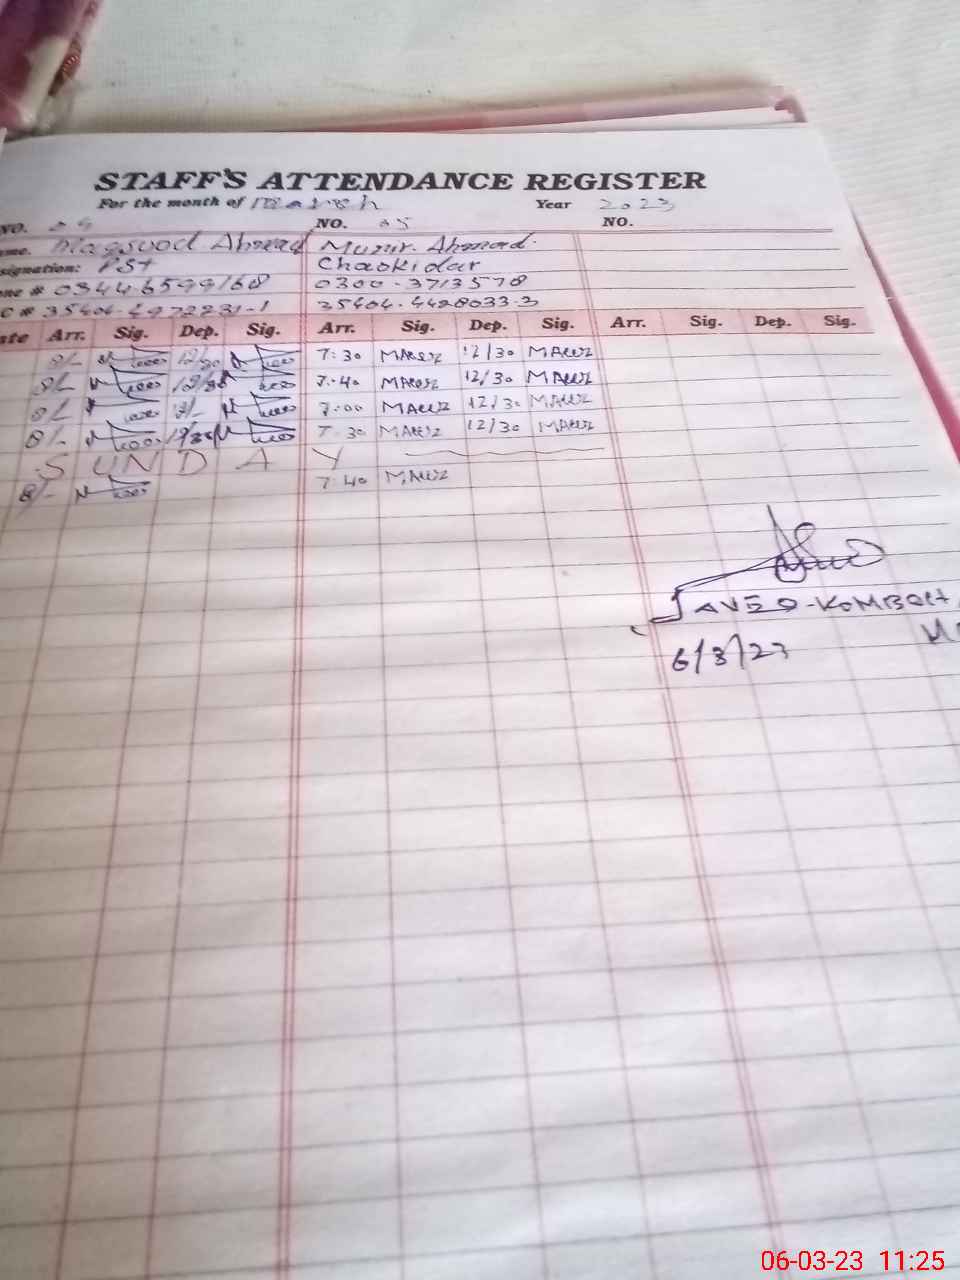 STAFF'S ATTENDANCE REGISTER
For the month of March Year 2023
NO. NO. 05 NO.
me. Maqsood Ahmad Munir. Ahmad.
signation: PST Chaokidar
ne # 0344-6599168 0300-3713578
C # 35404-4972231-1 35404-4428033-3
te Arr. Sig. Dep. Sig. Arr. Sig. Dep. Sig. Arr. Sig. Dep. Sig.
8/- 12/30 7:30 12/30
8/- 12/30 7:40 12/30
8/- 12/- 7:00 12/30
8/- 12/30 7:30 12/30
SUNDAY
8/- 7:40
JAVED-KOMBOH
6/3/23
06-03-23 11:25